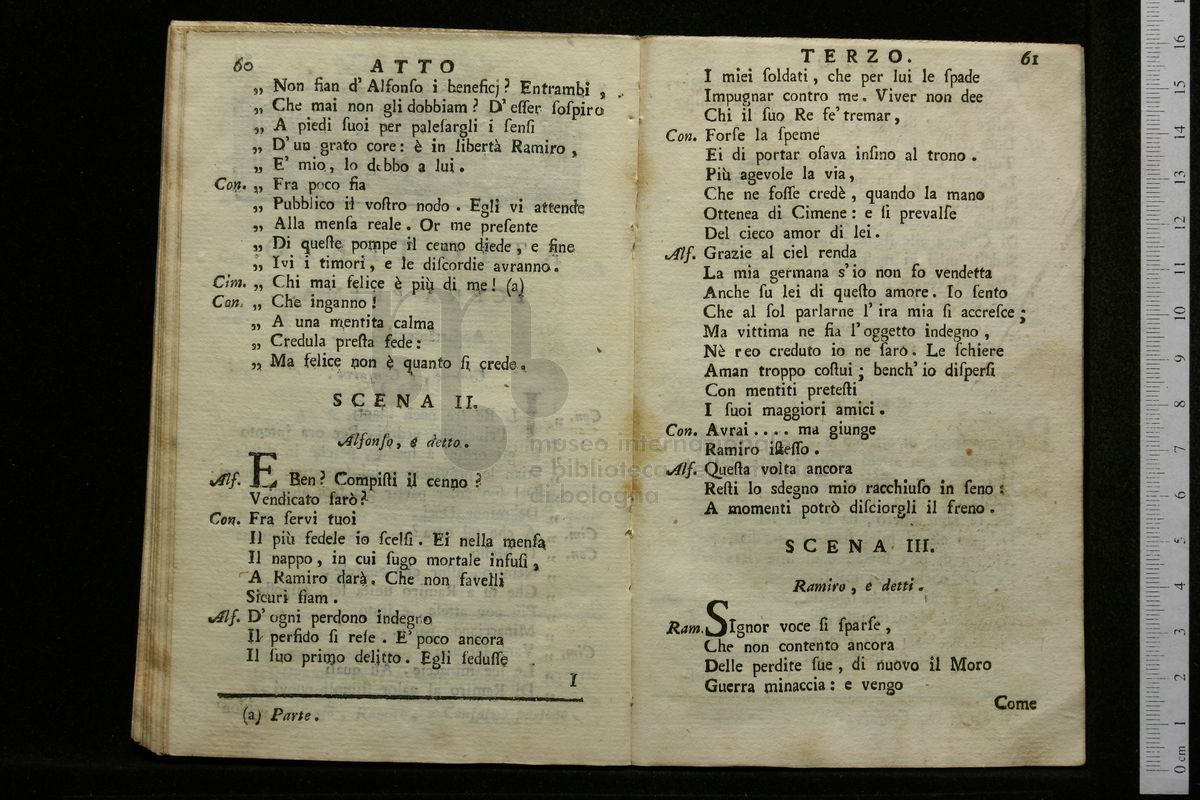 60 ATTO
„ Non ſian d' Alfonſo i beneficj? Entrambi,
„ Che mai non gli dobbiam? D' eſſer ſoſpiro
„ A piedi ſuoi per paleſargli i ſenſi
„ D' un grato core: è in libertà Ramiro,
„ E' mio, lo debbo a lui.
Con. „ Fra poco fia
„ Pubblico il voſtro nodo. Egli vi attende
„ Alla menſa reale. Or me preſente
„ Di queſte pompe il cenno diede, e fine
„ Ivi i timori, e le diſcordie avranno.
Cim. „ Chi mai felice è più di me! (a)
Con. „ Che inganno!
„ A una mentita calma
„ Credula preſta fede:
„ Ma felice non è quanto ſi crede.
SCENA II.
Alfonſo, e detto.
Alf. E Ben? Compiſti il cenno?
Vendicato ſarò?
Con. Fra ſervi tuoi
Il più fedele io ſcelſi. Ei nella menſa
Il nappo, in cui ſugo mortale infuſi,
A Ramiro darà. Che non favelli
Sicuri ſiam.
Alf. D' ogni perdono indegno
Il perfido ſi reſe. E' poco ancora
Il ſuo primo delitto. Egli ſeduſſe
I
(a) Parte.
TERZO. 61
I miei ſoldati, che per lui le ſpade
Impugnar contro me. Viver non dee
Chi il ſuo Re fe' tremar,
Con. Forſe la ſpeme
Ei di portar oſava inſino al trono.
Più agevole la via,
Che ne foſſe credè, quando la mano
Ottenea di Cimene: e ſi prevalſe
Del cieco amor di lei.
Alf. Grazie al ciel renda
La mia germana s' io non fo vendetta
Anche ſu lei di queſto amore. Io ſento
Che al ſol parlarne l' ira mia ſi accreſce;
Ma vittima ne fia l' oggetto indegno,
Nè reo creduto io ne ſarò. Le ſchiere
Aman troppo coſtui; bench' io diſperſi
Con mentiti preteſti
I ſuoi maggiori amici.
Con. Avrai.... ma giunge
Ramiro iſteſſo.
Alf. Queſta volta ancora
Reſti lo sdegno mio racchiuſo in ſeno:
A momenti potrò diſciorgli il freno.
SCENA III.
Ramiro, e detti.
Ram. SIgnor voce ſi ſparſe,
Che non contento ancora
Delle perdite ſue, di nuovo il Moro
Guerra minaccia: e vengo
Come
museo internazionale
e biblioteca
di bologna
0 cm 1 2 3 4 5 6 7 8 9 10 11 12 13 14 15 16